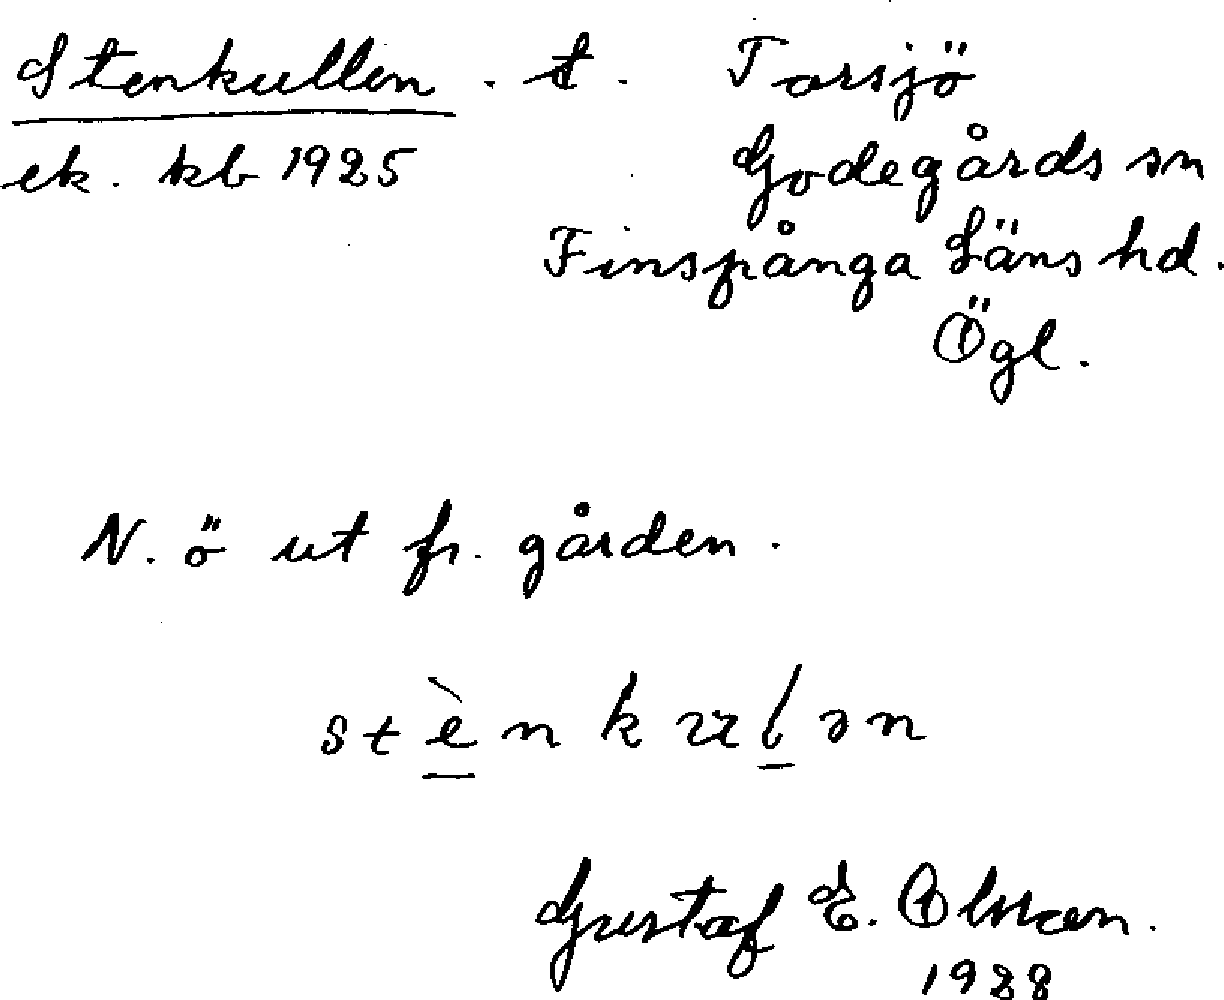 Stenkullen . t . Torsjö
ek. kb 1925 Godegårds sn
Finspånga Läns hd.
Ögl.
N. ö ut fr. gården.
stènkulən
Gustaf E. Olsson.
1928